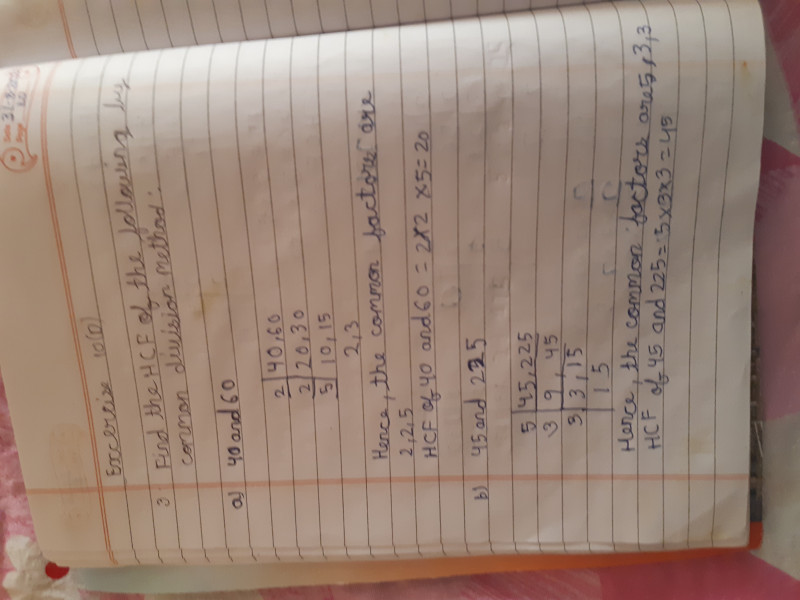 Excercise 10(B)
3. Find the HCF of the following by
common division method.
a) 40 and 60
2 | 40,60
2 | 20,30
5 | 10,15
2,3
Hence, the common factors are
2,2,5
HCF of 40 and 60 = 2×2×5=20
b) 45 and 225
5 | 45,225
3 | 9,45
3 | 3,15
1 5
Hence, the common factors are 5,3,3
HCF of 45 and 225 = 5×3×3=45